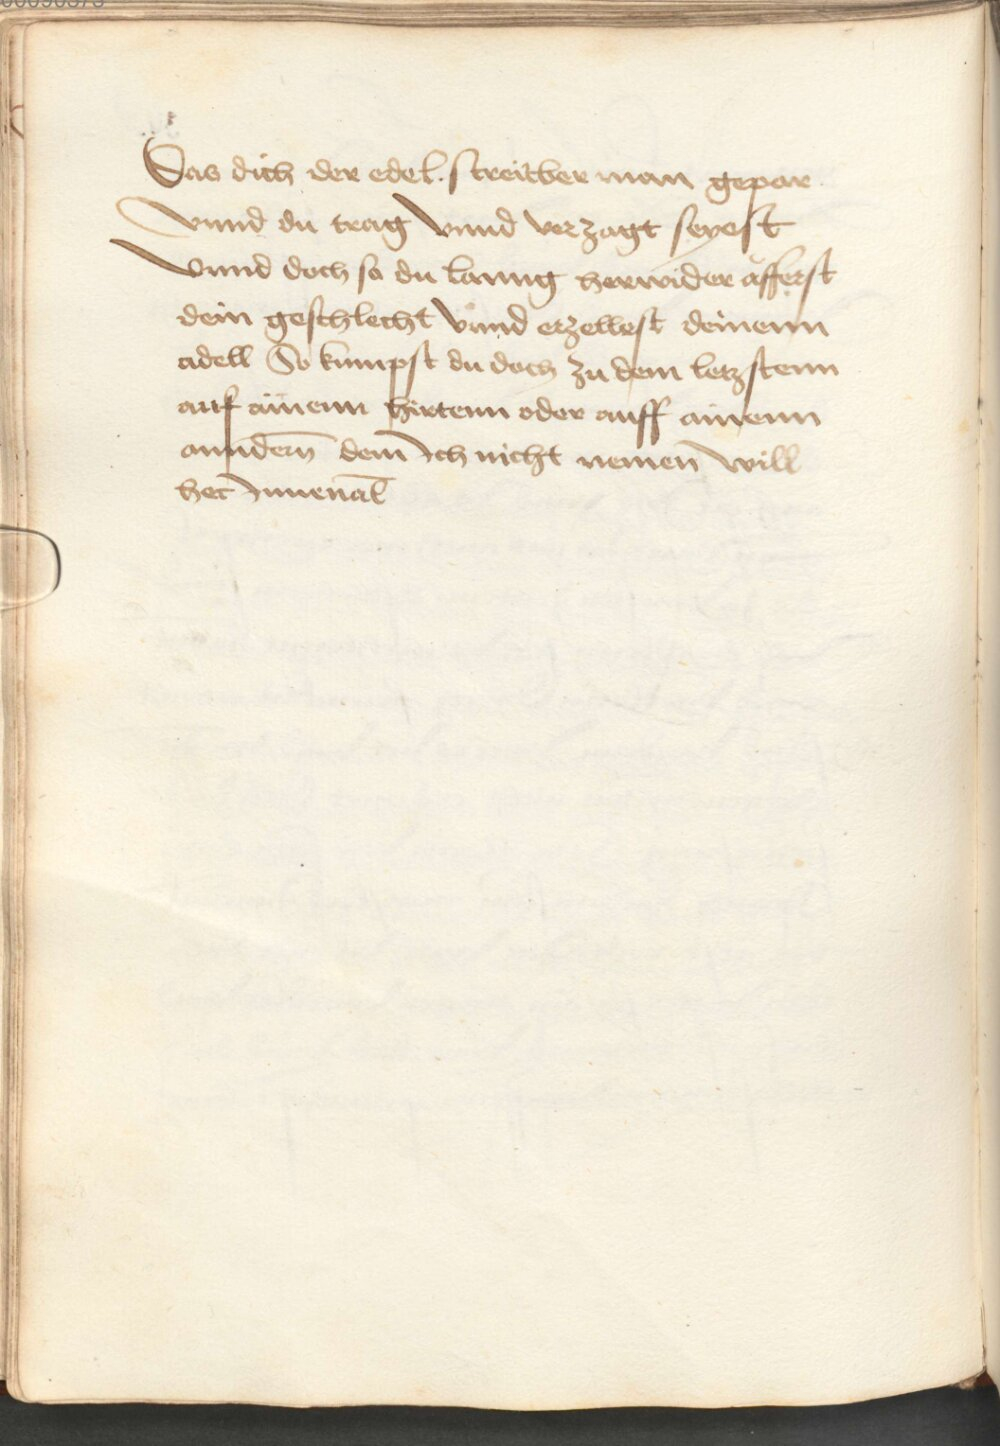 Das dich der edel. streitber man gepar
Vnnd du trag Vnnd verzagt seyest
Vnnd doch so du lanng herwider äfferst
dein geschlecht Vnnd erzellest deinenn
adell So kumpst du doch zu dem letzstenn
auf ainenn hirtenn oder auff ainenn
anndern̄ dem̄ Ich nicht nemen will
hec Iuuenal̄